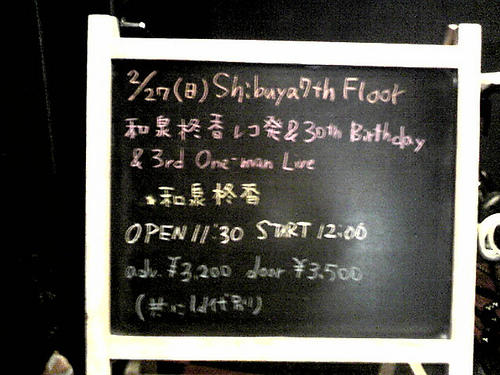 2/27(日) Shibuya7th Floor
和泉柊香レコ発&30th Birthday
& 3rd One-man Live
★和泉柊香
OPEN 11:30 START 12:00
adv. ¥3,200 door ¥3,500
(共に1d代別)